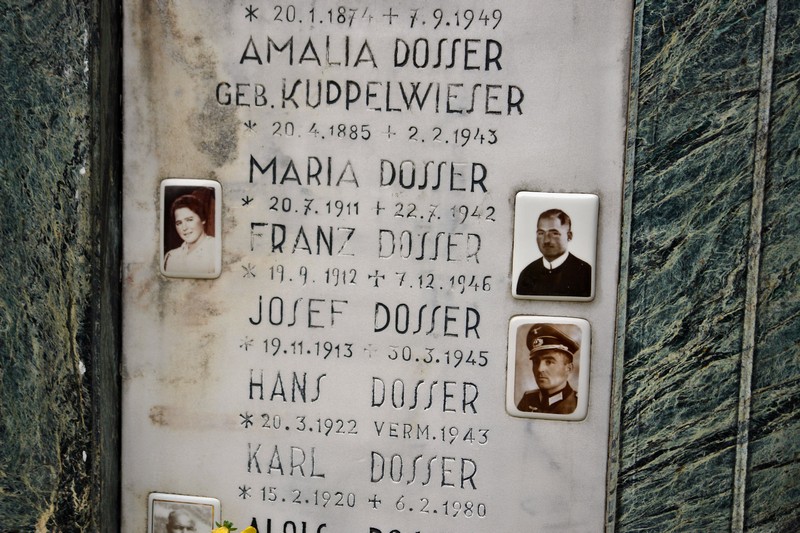 * 20.1.1874 + 7.9.1949
AMALIA DOSSER
GEB. KUPPELWIESER
* 20.4.1885 + 2.2.1943
MARIA DOSSER
* 20.7.1911 + 22.7.1942
FRANZ DOSSER
* 19.9.1912 + 7.12.1946
JOSEF DOSSER
* 19.11.1913 + 30.3.1945
HANS DOSSER
* 20.3.1922 VERM.1943
KARL DOSSER
* 15.2.1920 + 6.2.1980
ALOIS